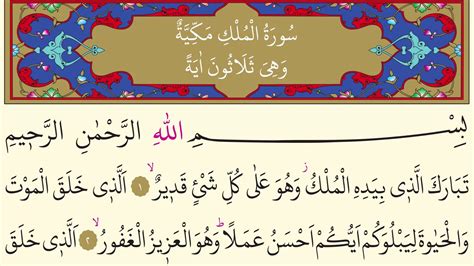 سُورَةُ الْمُلْكِ مَكِّيَّةٌ
وَهِىَ ثَلَاثُونَ اٰيَةً
بِسْــــمِ اللّٰهِ الرَّحْمٰنِ الرَّحٖيمِ
تَبَارَكَ الَّذٖى بِيَدِهِ الْمُلْكُ ز وَهُوَ عَلٰى كُلِّ شَىْءٍ قَدٖيرٌ ۙ ﴿١﴾ اَلَّذٖى خَلَقَ الْمَوْتَ
وَالْحَيٰوةَ لِيَبْلُوَكُمْ اَيُّكُمْ اَحْسَنُ عَمَلًا ؕ وَهُوَ الْعَزٖيزُ الْغَفُورُ ۙ ﴿٢﴾ اَلَّذٖى خَلَقَ